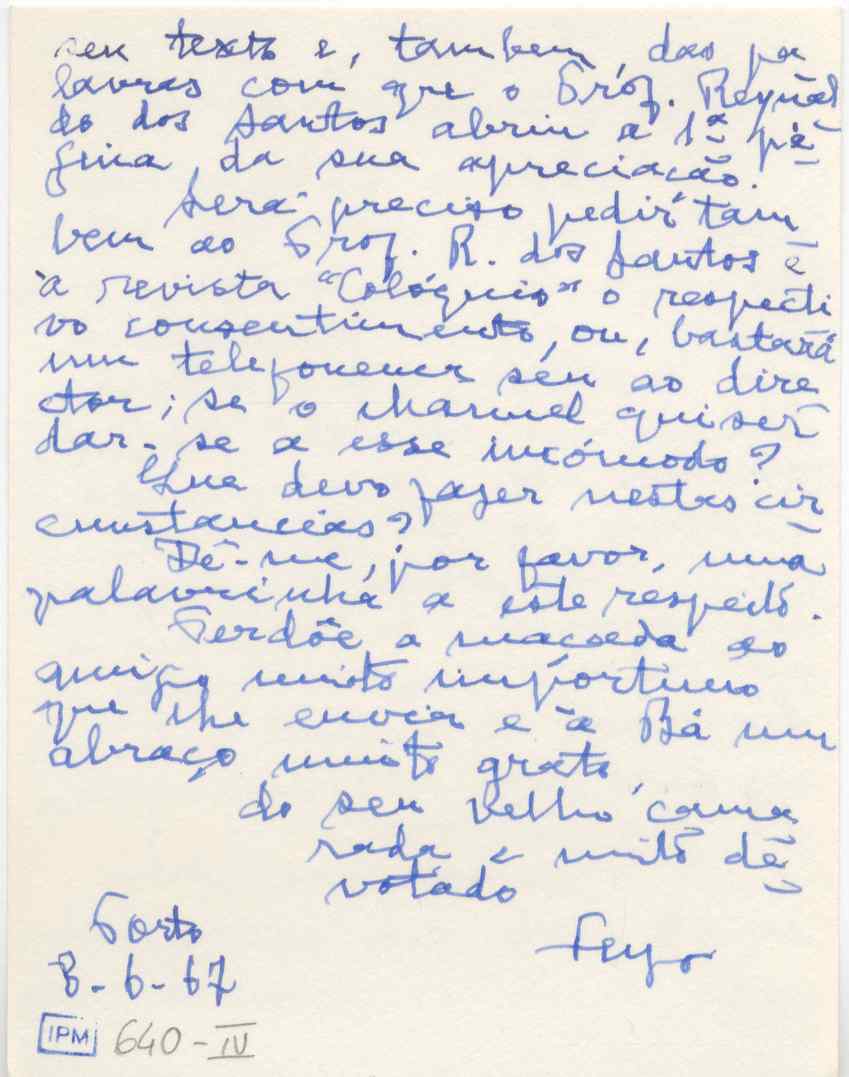 seu texto e, tambem, das pa
lavras com que o Prof. Reynal
do dos Santos abriu a 1ª pá-
gina da sua apreciação.
Será preciso pedir tam
bem ao Prof. R. dos Santos e
à revista "Colóquio" o respecti
vo consentimento, ou, bastará
um telefonema seu ao dire
ctor; se o Manuel quiser
dar-se a esse incómodo?
Que devo fazer nestas cir
cunstancias?
Dê-me, por favor, uma
palavrinha a este respeito.
Perdôe a massada ao
amigo muito importuno
que lhe envia e à Bá um
abraço muito grato
do seu velho cama
rada e muito de
votado
Feyo
Porto
8-6-67
IPM 640-IV